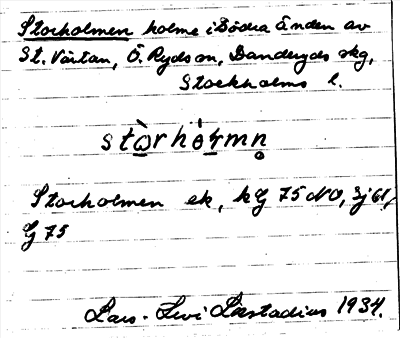 Storholmen holme i Södra änden av
St. Värtan, Ö. Ryds sn, Danderyds skg,
Stockholms l.
stòrhólmn̥
Storholmen ek, kG 75 NO, Sj 61,
G 75
Lars-Levi Læstadius 1934.